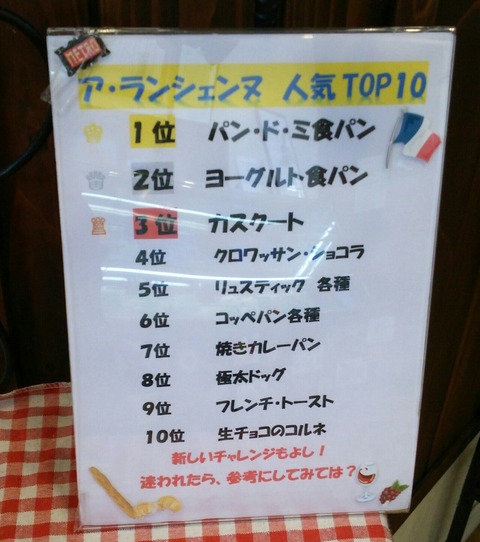 METRO
ア・ランシェンヌ 人気TOP10
1位 パン・ド・ミ食パン
2位 ヨーグルト食パン
3位 カスクート
4位 クロワッサン・ショコラ
5位 リュスティック 各種
6位 コッペパン各種
7位 焼きカレーパン
8位 極太ドッグ
9位 フレンチ・トースト
10位 生チョコのコルネ
新しいチャレンジもよし!
迷われたら、参考にしてみては?